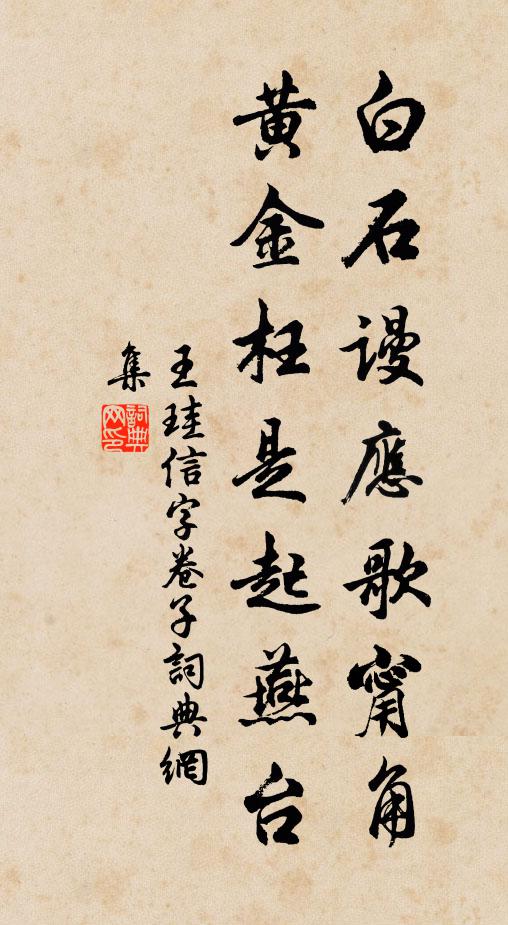 白石谩應歌甯角
黃金枉是起燕台
王珪信字卷子詞典網
集
詞典网印